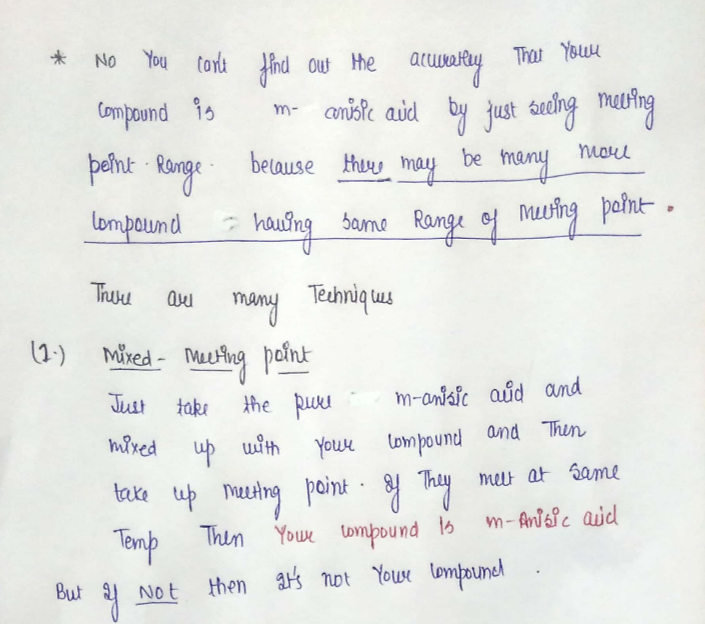 * No You can't find out the accurately That Your
Compound is m- anisic acid by just seeing melting
point . Range . because there may be many more
Compound = having same Range of Melting point .
There are many Techniques
(1.) Mixed - Melting point
Just take the pure m-anisic acid and
mixed up with Your Compound and Then
take up melting point . If They melt at same
Temp Then Your Compound Is m-Anisic acid
But If NOT then It's not Your Compound .